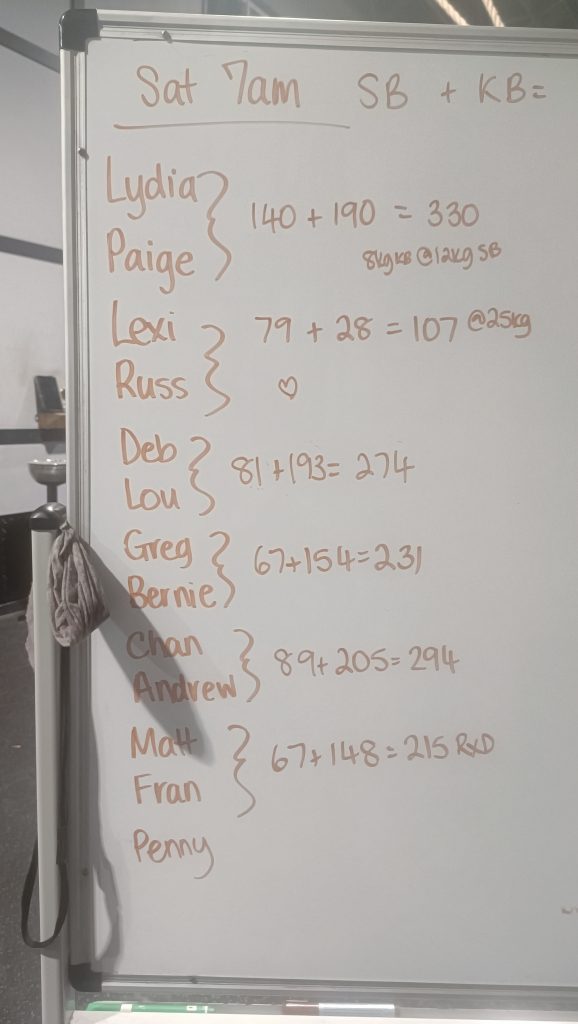 Sat 7am SB + KB =
Lydia
140 + 190 = 330
Paige
8kg KB @ 12kg SB
Lexi
79 + 28 = 107 @25kg
Russ ♡
Deb
81 + 193 = 274
Lou
Greg
67 + 154 = 231
Bernie
Chan
89 + 205 = 294
Andrew
Matt
67 + 148 = 215 RxD
Fran
Penny